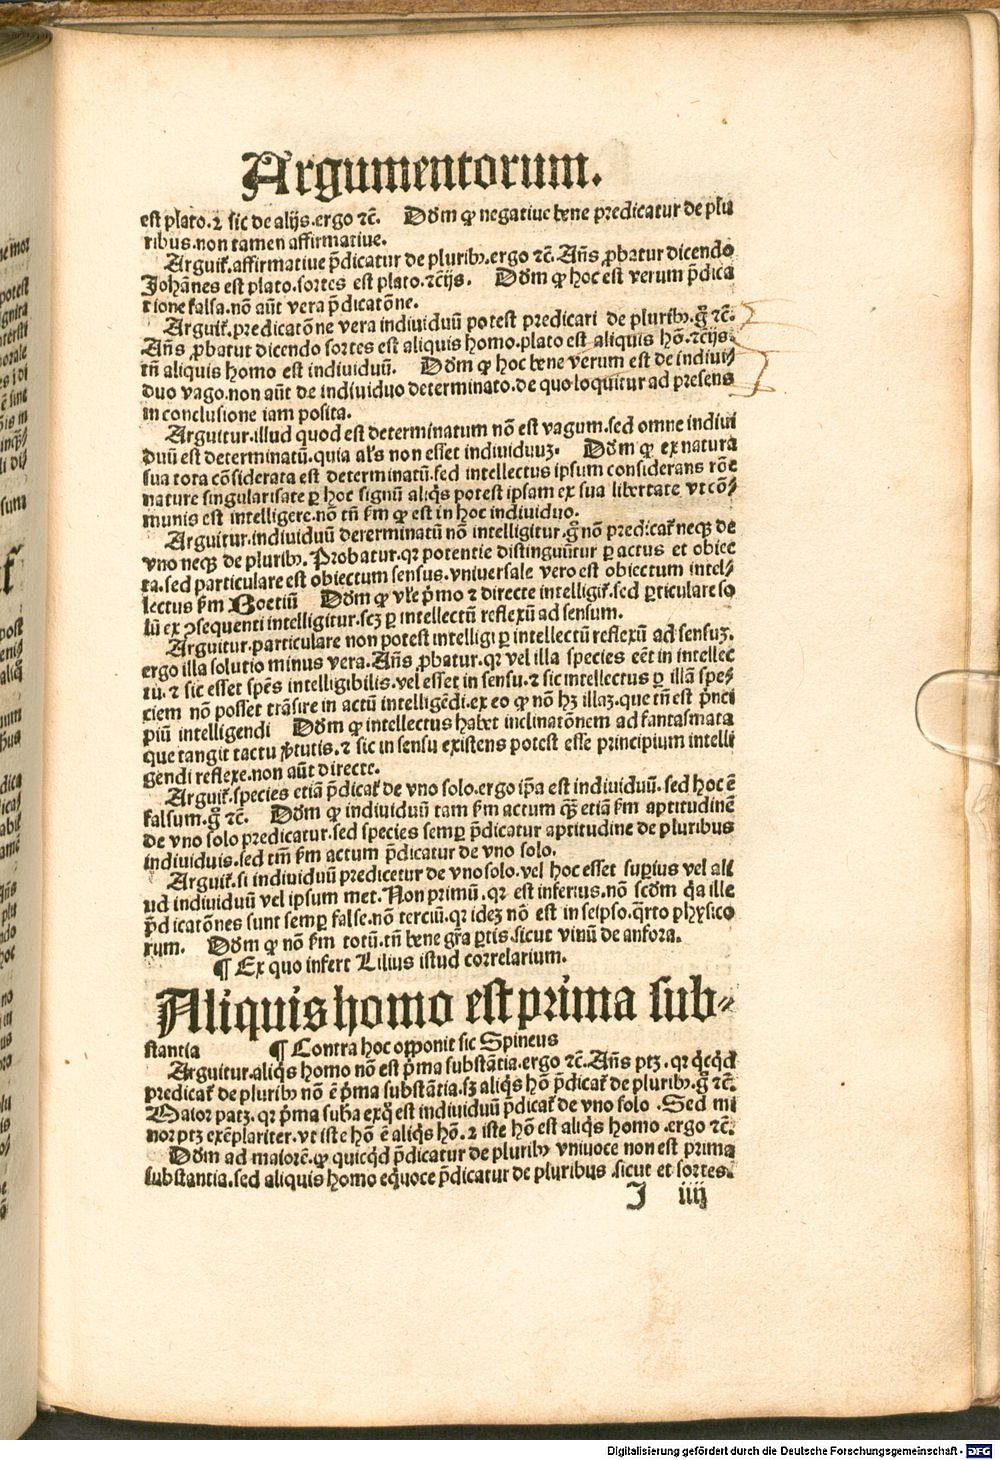 Argumentorum.
est plato. ⁊ sic de alijs. ergo ⁊c̄. Dōm ꝙ negatiue bene predicatur de plu
ribus. non tamen affirmatiue.
Arguit̄. affirmatiue p̄dicatur de plurib⁹. ergo ⁊c̄. Añs ꝓbatur dicendo
Johānes est plato. sortes est plato. ⁊c̄ijs. Dōm ꝙ hoc est verum p̄dica
tione falsa. nō aūt vera p̄dicatōne.
Arguit̄. predicatōne vera indiuiduū potest predicari de plurib⁹. gͦ ⁊c̄.
Añs ꝓbatur dicendo sortes est aliquis homo. plato est aliquis hō. ⁊c̄ijs.
tn̄ aliquis homo est indiuiduū. Dōm ꝙ hoc bene verum est de indiui⸗
duo vago. non aūt de indiuiduo determinato. de quo loquitur ad presens
in conclusione iam posita.
Arguitur. illud quod est determinatum nō est vagum. sed omne indiui
duū est determinatū. quia al's non esset indiuiduuꝫ. Dōm ꝙ ex natura
sua tota cōsiderata est determinatū. sed intellectus ipsum considerans rōe
nature singularisate ꝑ hoc signū aliq̄s potest ipsam ex sua libertate vt cō⸗
munis est intelligere. nō tn̄ fm̄ ꝙ est in hoc indiuiduo.
Arguitur. indiuiduū dererminatū nō intelligitur. gͦ nō predicat̄ neqꝫ de
vno neqꝫ de plurib⁹. Probatur. qr potentie distinguūtur ꝑ actus et obiec
ta. sed particulare est obiectum sensus. vniuersale vero est obiectum intel⸗
lectus fm̄ Boetiū Dōm ꝙ vl'e p̄mo ⁊ directe intelligit̄. sed ꝑticulare so
lū ex ꝯsequenti intelligitur. scꝫ ꝑ intellectū reflexū ad sensum.
Arguitur. particulare non potest intelligi ꝑ intellectū reflexū ad sensuꝫ.
ergo illa solutio minus vera. Añs ꝓbatur. qr vel illa species eēt in intellec
tu. ⁊ sic esset spēs intelligibilis. vel esset in sensu. ⁊ sic intellectus ꝑ illā spe⸗
ciem nō posset trāsire in actū intelligēdi. ex eo ꝙ nō hꝫ illaꝫ. que tn̄ est p̄nci
piū intelligendi Dōm ꝙ intellectus habet inclinatōnem ad fantasmata
que tangit tactu ꝟtutis. ⁊ sic in sensu existens potest esse principium intelli
gendi reflexe. non aūt directe.
Arguit̄. species etiā p̄dicat̄ de vno solo. ergo ip̄a est indiuiduū. sed hoc ē
falsum. gͦ ⁊c̄. Dōm ꝙ indiuiduū tam fm̄ actum qꝫ̄ etiā fm̄ aptitudinē
de vno solo predicatur. sed species semꝑ p̄dicatur aptitudine de pluribus
indiuiduis. sed tm̄ fm̄ actum p̄dicatur de vno solo.
Arguit̄. si indiuiduū predicetur de vno solo. vel hoc esset suꝑius vel ali
ud indiuiduū vel ipsum met. Non primū. qr est inferius. nō scōm q̄a ille
p̄dicatōnes sunt semꝑ false. nō terciū. qr ideꝫ nō est in seipso. q̄rto physico
rum. Dōm ꝙ nō fm̄ totū. tn̄ bene gr̄a ꝑtis. sicut vinū de anfora.
¶ Ex quo infert Lilius istud correlarium.
Aliquis homo est prima sub⸗
stantia ¶ Contra hoc opponit sic Spineus
Arguitur. aliq̄s homo nō est p̄ma substātia. ergo ⁊c̄. Añs ptꝫ. qr q̄cq̄d
predicat̄ de plurib⁹ nō ē p̄ma substātia. sꝫ aliq̄s hō p̄dicat̄ de plurib⁹. gͦ ⁊c̄.
Maior patꝫ. qr p̄ma sub̄a exq̄ est indiuiduū p̄dicat̄ de vno solo. Sed mi
nor ptꝫ exēplariter. vt iste hō ē aliq̄s hō. ⁊ iste hō est aliq̄s homo. ergo ⁊c̄.
Dōm ad maiorē. ꝙ quicq̄d p̄dicatur de plurib⁹ vniuoce non est prima
substantia. sed aliquis homo eq̄uoce p̄dicatur de pluribus. sicut et sortes.
J iiij
Digitalisierung gefördert durch die Deutsche Forschungsgemeinschaft - DFG